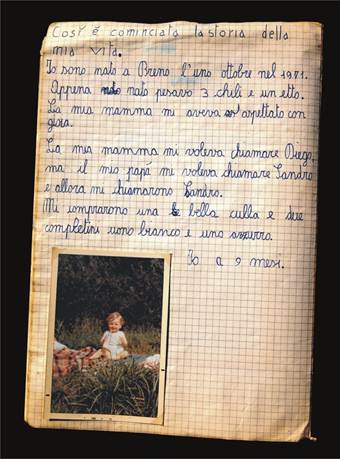 Così è cominciata la storia della
mia vita.
Io sono nato a Breno l'uno ottobre nel 1971.
Appena nato pesavo 3 chili e un etto.
La mia mamma mi aveva aspettato con
gioia.
La mia mamma mi voleva chiamare Diego,
ma il mio papá mi voleva chiamare Sandro
e allora mi chiamarono Sandro.
Mi comprarono una bella culla e due
completini uono bianco e uno azzurro.
Io a 9 mesi.